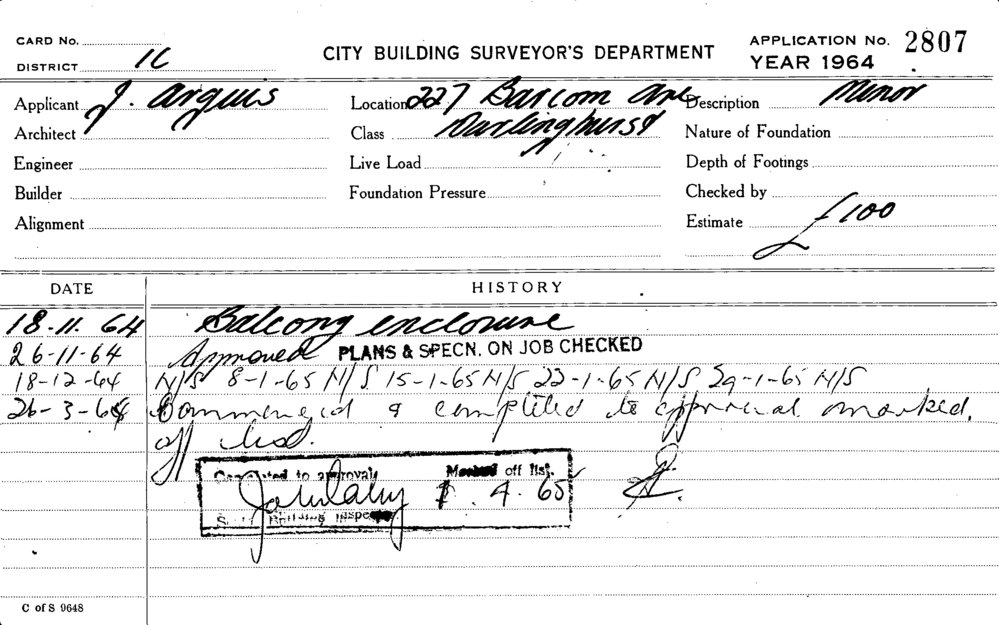 CARD No.
DISTRICT 1C
CITY BUILDING SURVEYOR'S DEPARTMENT
APPLICATION No. 2807
YEAR 1964
Applicant J. Arguis
Location 227 Barcom Ave
Description Minor
Architect
Class Darlinghurst
Nature of Foundation
Engineer
Live Load
Depth of Footings
Builder
Foundation Pressure
Checked by
Alignment
Estimate £100
DATE HISTORY
18.11.64 Balcony enclosure
26-11-64 Approved PLANS & SPECN. ON JOB CHECKED
18-12-64 N/S 8-1-65 N/S 15-1-65 N/S 22-1-65 N/S 29-1-65 N/S
26-3-65 Commenced & completed to approval marked
off list.
Completed to approval Marked off list.
4.65
Building Inspector
C of S 9648